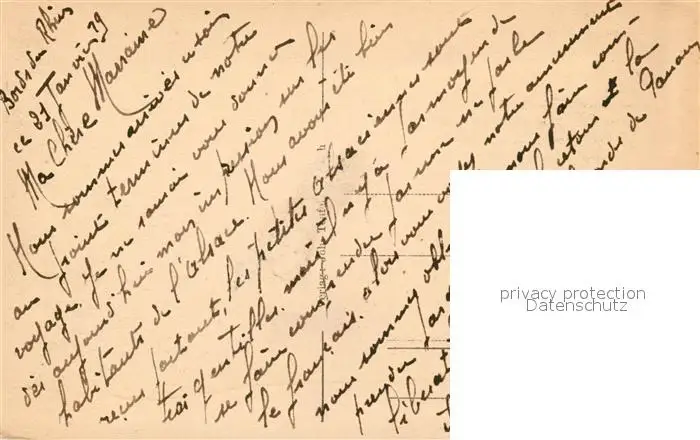 Bords du Rhin
ce 31 Janvier 19
Ma Chère Marraine
Nous sommes arrivés
au point terminus de notre
voyage. Je ne saurais vous donner
dès aujourd'hui mon impression sur les
habitants de l'Alsace. Nous avons été bien
reçus partout, les petites Alsaciennes sont
très gentilles mais il n'y a pas moyen de
se faire comprendre, pas une ne parle
le français. alors vous voyez notre amusement
nous sommes obl
nous faire com
prendre par
libérat
la
privacy protection
Datenschutz